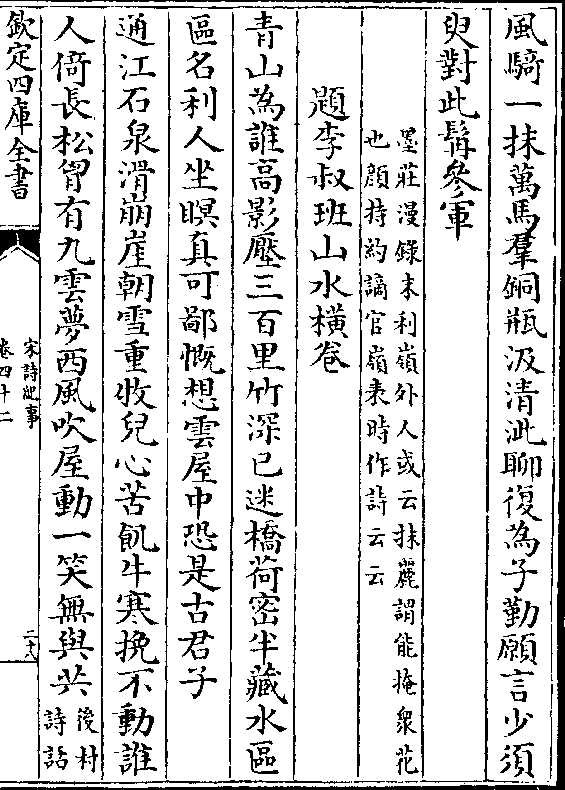 風騎一抹萬馬羣銅瓶汲清泚聊復為子勤願言少須
臾對此髯參軍
墨莊漫錄末利嶺外人或云抹麗謂能掩衆花
也顔持約謫官嶺表時作詩云云
題李叔班山水横卷
青山為誰高影壓三百里竹深已迷橋荷密半藏水區
區名利人坐瞑真可鄙慨想雲屋中恐是古君子
通江石泉滑崩崖朝雪重收兒心苦飢牛寒挽不動誰
人倚長松胷有九雲夢西風吹屋動一笑無與共
後村
詩話
欽定四庫全書
宋詩紀事
卷四十二
二十八